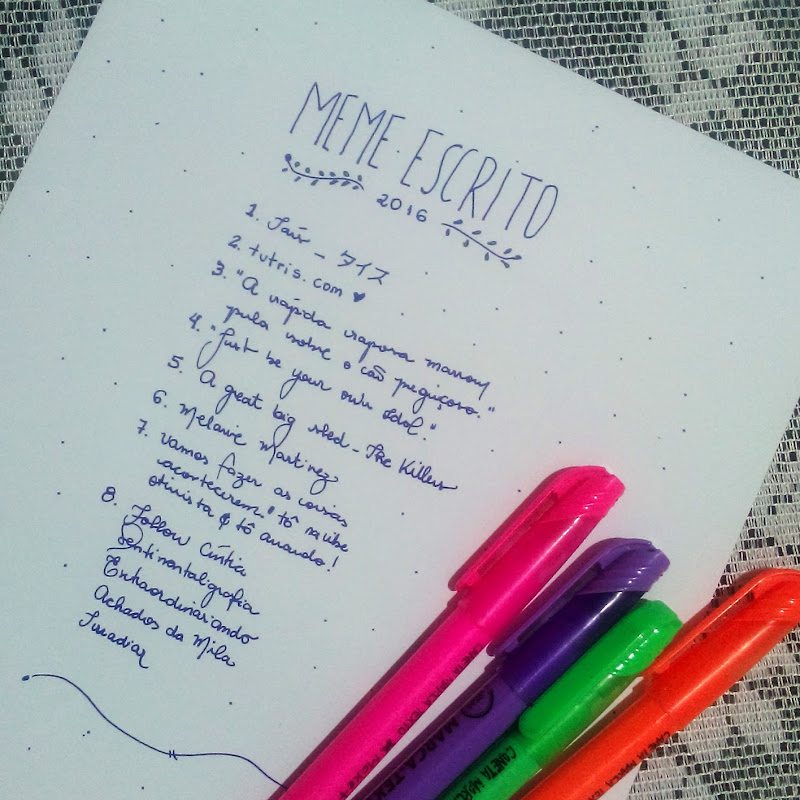 MEME·ESCRITO
2016
1. Taís - タイス
2. tutris.com ♥
3. "A rápida raposa marrom
pula sobre o cão preguiçoso."
4. "Just be your own idol."
5. A great big sled - The Killers
6. Melanie Martinez
7. vamos fazer as coisas
acontecerem! tô na vibe
&
tô amando!
8. Follow Cíntia
Sentimentaligrafia
Extraordinariando
Achados da Mila
Irradiar
MARCA TEXTO
MARCA-TEX
CANETA MARC
CANETA MARCA